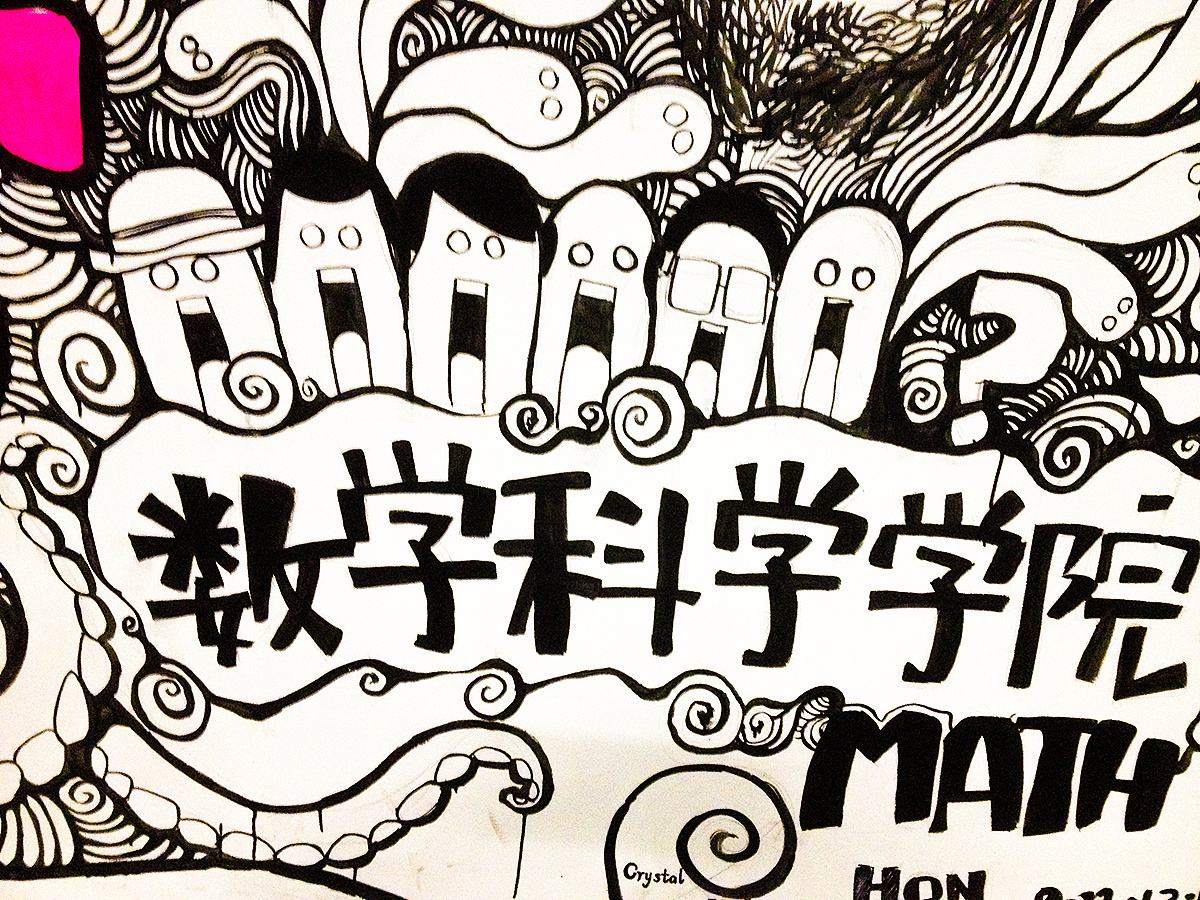 ?
数学科学学院
MATH
Crystal
HON